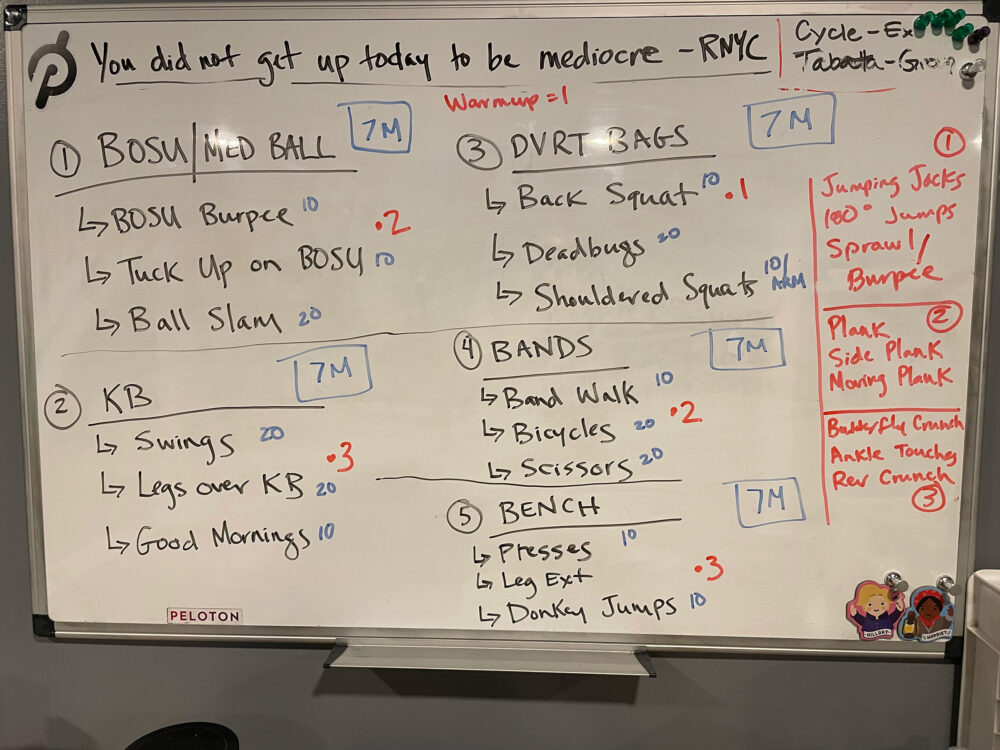 You did not get up today to be mediocre - RNYC
Cycle - Ex
Tabata -
Warmup = 1
① BOSU/MED BALL 7M
↳ BOSU Burpee 10
• 2
↳ Tuck Up on BOSU 10
↳ Ball Slam 20
② KB 7M
↳ Swings 20
• 3
↳ Legs over KB 20
↳ Good Mornings 10
③ DVRT BAGS 7M
↳ Back Squat 10 • 1
↳ Deadbugs 20
↳ Shouldered Squats 10/ARM
④ BANDS 7M
↳ Band Walk 10
↳ Bicycles 20 • 2
↳ Scissors 20
⑤ BENCH 7M
↳ Presses 10
↳ Leg Ext • 3
↳ Donkey Jumps 10
①
Jumping Jacks
180° Jumps
Sprawl/
Burpee
Plank ②
Side Plank
Moving Plank
Butterfly Crunch
Ankle Touches
Rev Crunch
③
PELOTON
HILLARY
HARRIET